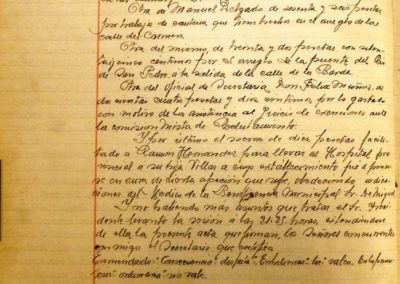 Otra de Manuel Delgado de sesenta y seis pesetas
por trabajo de en el arreglo de la
calle del Carmen.
Otra del mismo, de treinta y dos pesetas con
céntimos por el arreglo de la puente del
de San Pedro, a la salida de la calle de la Barda
Otra del oficial de Secretaria Don Felix Muñoz, de
pesetas y diez centimos, por lo gastado
con motivo de la asistencia al Juicio de exenciones ante
la comision Mixta de Reclutamiento.
Y por último el socorro de diez pesetas facili-
tado a Ramon Hernandez para llevar al Hospital pro-
vincial a su hija a cuyo establecimiento fué a poner
se en cura de cierta afeccion que sufre, obedeciendo indica-
ciones del Medico de la Beneficencia municipal Sr.
Y no habiendo mas asuntos que tratar el Sr. Presi
dente levantó la sesión a las 21.25 horas, extendiendose
de ella la presente acta que firman los señores concurrentes
conmigo el Secretario que certifica
Enmendado= =Entrelineas= los= valen. Entre
ordinaria= no vale.